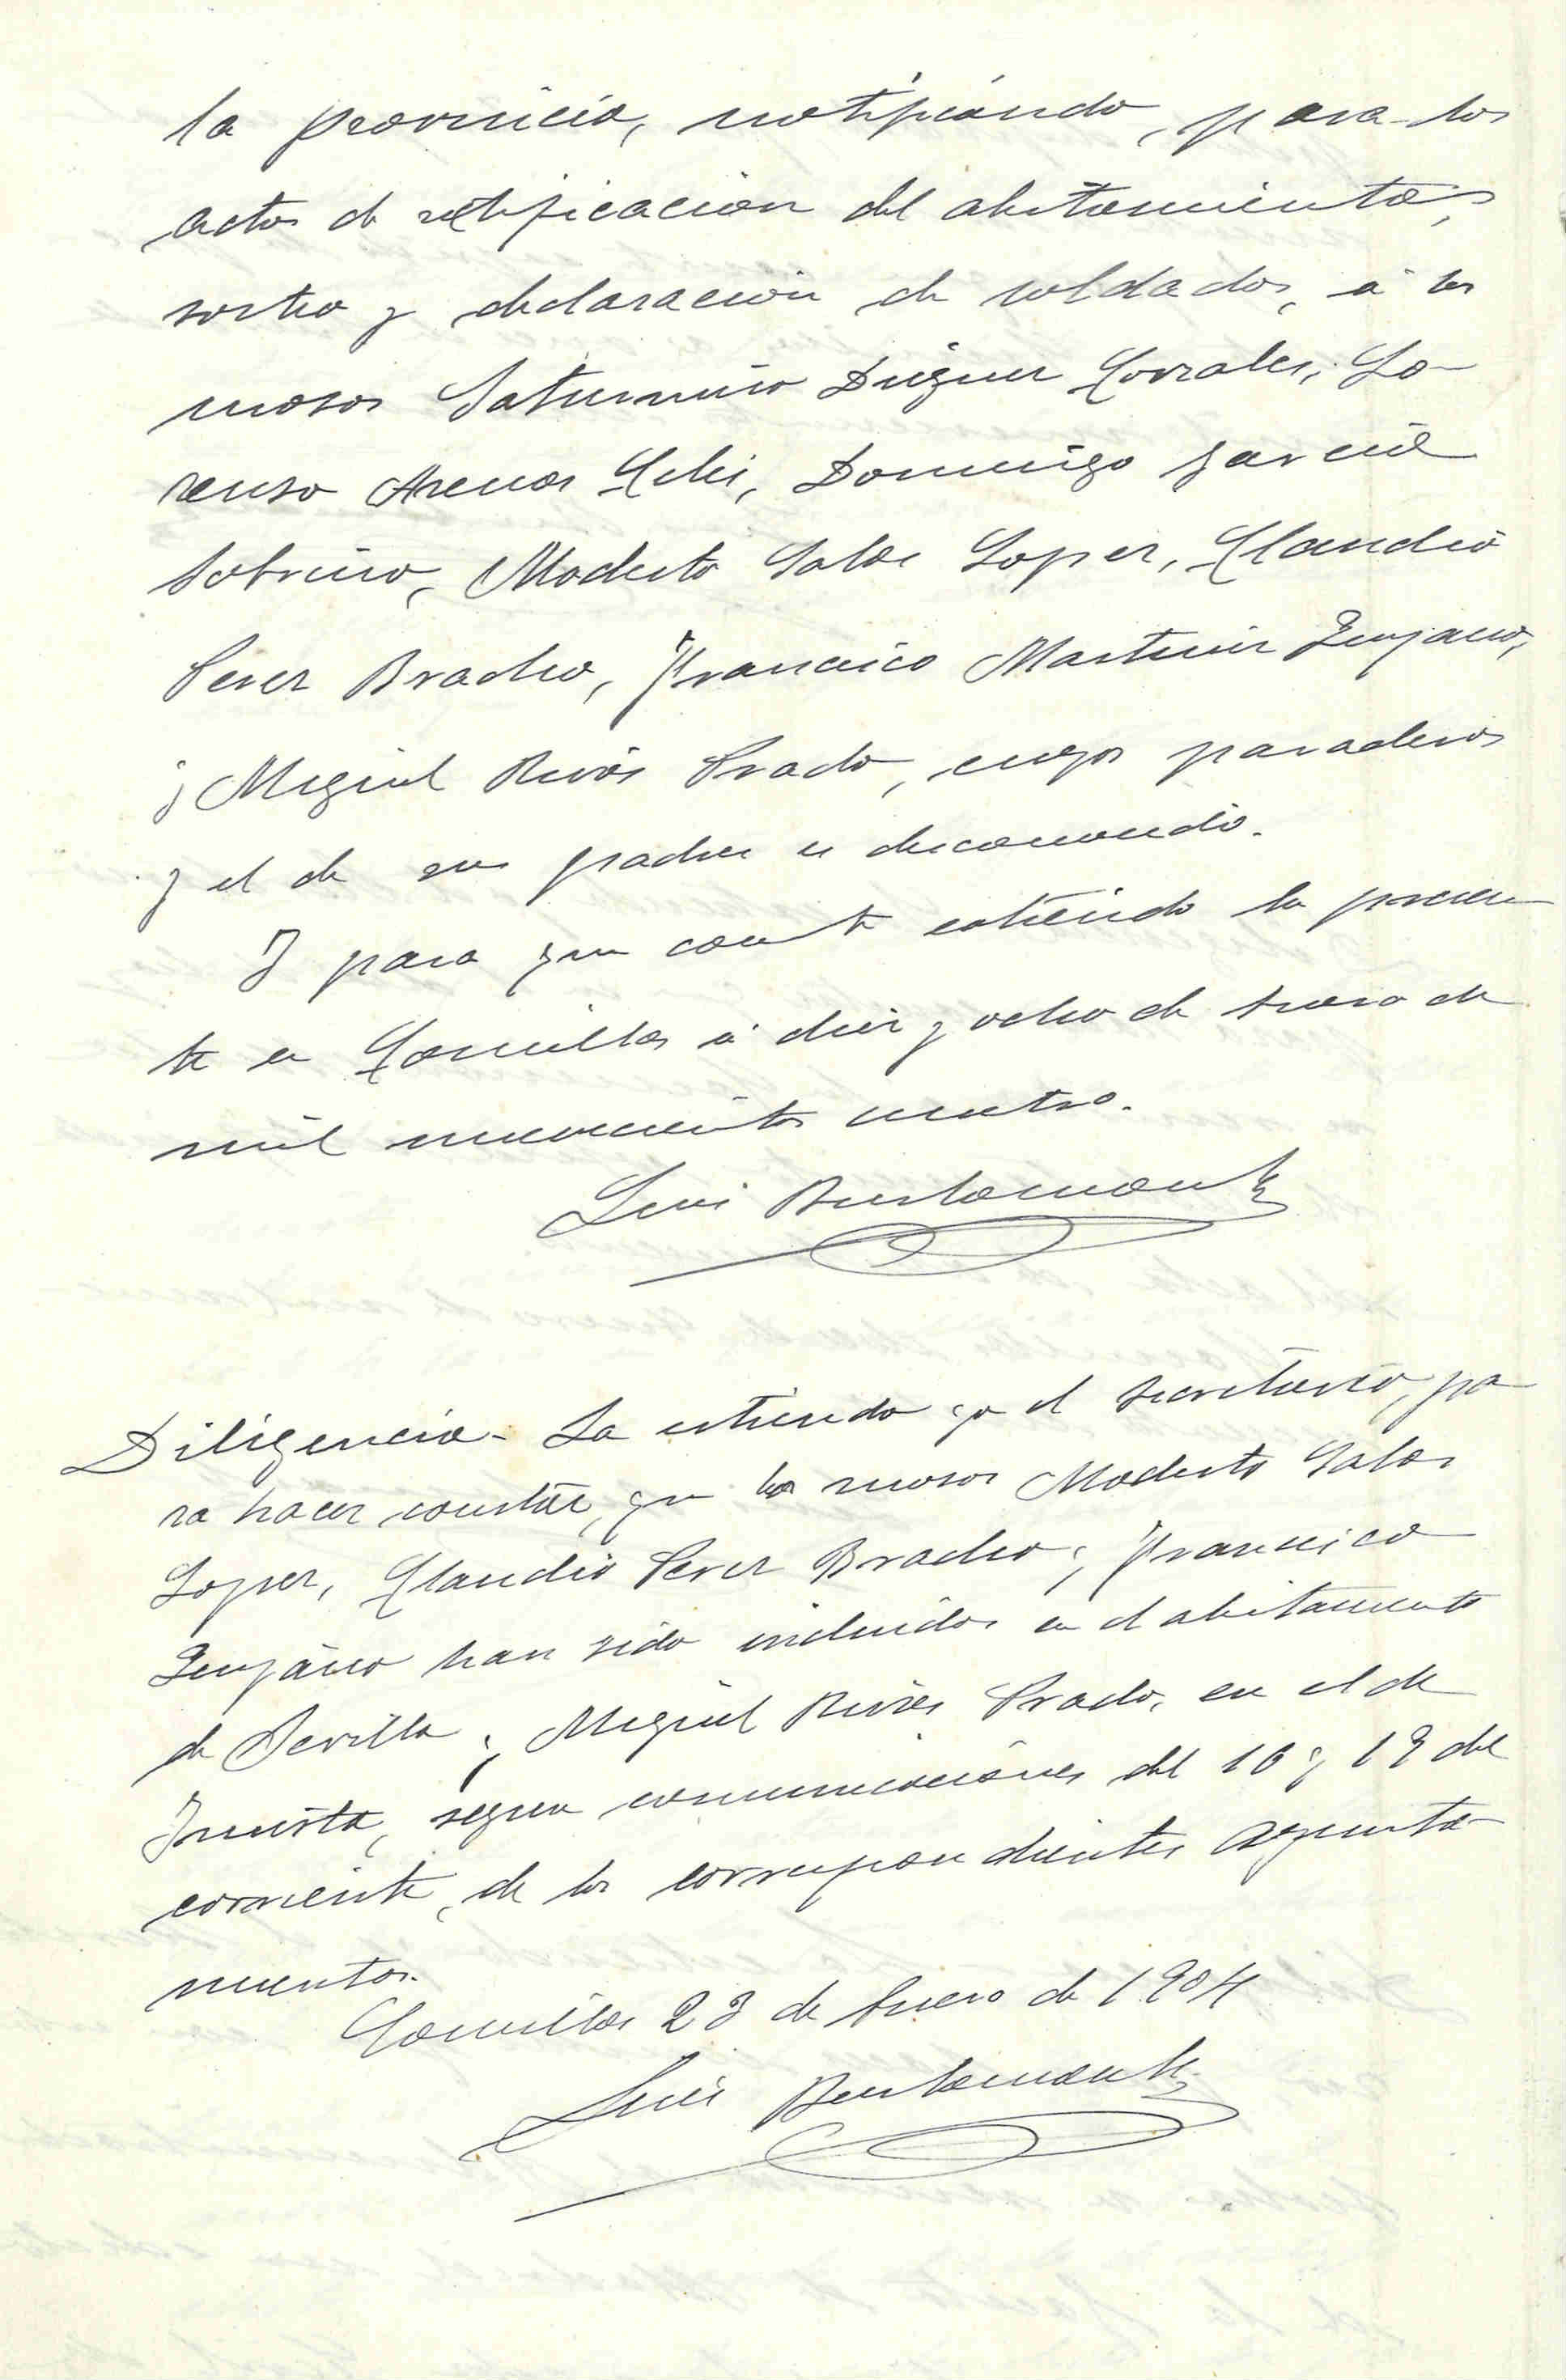 la provincia, notificando, para los
actos de rectificación del alistamiento,
sorteo y declaración de soldados, á los
mosos Saturnino Diguez Corrales, Lo-
renso Arenas Celis, Domingo Garcia
Sobrino, Modesto Salas Lopez, Claudio
Perez Bracho, Francisco Martinez
y Miguel Rivas Prado, cuyos paraderos
y el de sus padres es desconocido.
Y para que conste estiendo la presen
te en Comillas á diez y ocho de Enero de
mil novecientos cuatro.
Luis Bustamante
Diligencia - La estiendo yo el Secretario, pa
ra hacer constar, que los mosos Modesto Salas
Lopez, Claudio Perez Bracho y Francisco
han sido incluidos en el alistamiento
de Sevilla y Miguel Rivas Prado, en el de
segun comunicaciones del 16 y 19 del
corriente, de los correspondientes Ayunta-
mientos.
Comillas 23 de Enero de 1904
Luis Bustamante